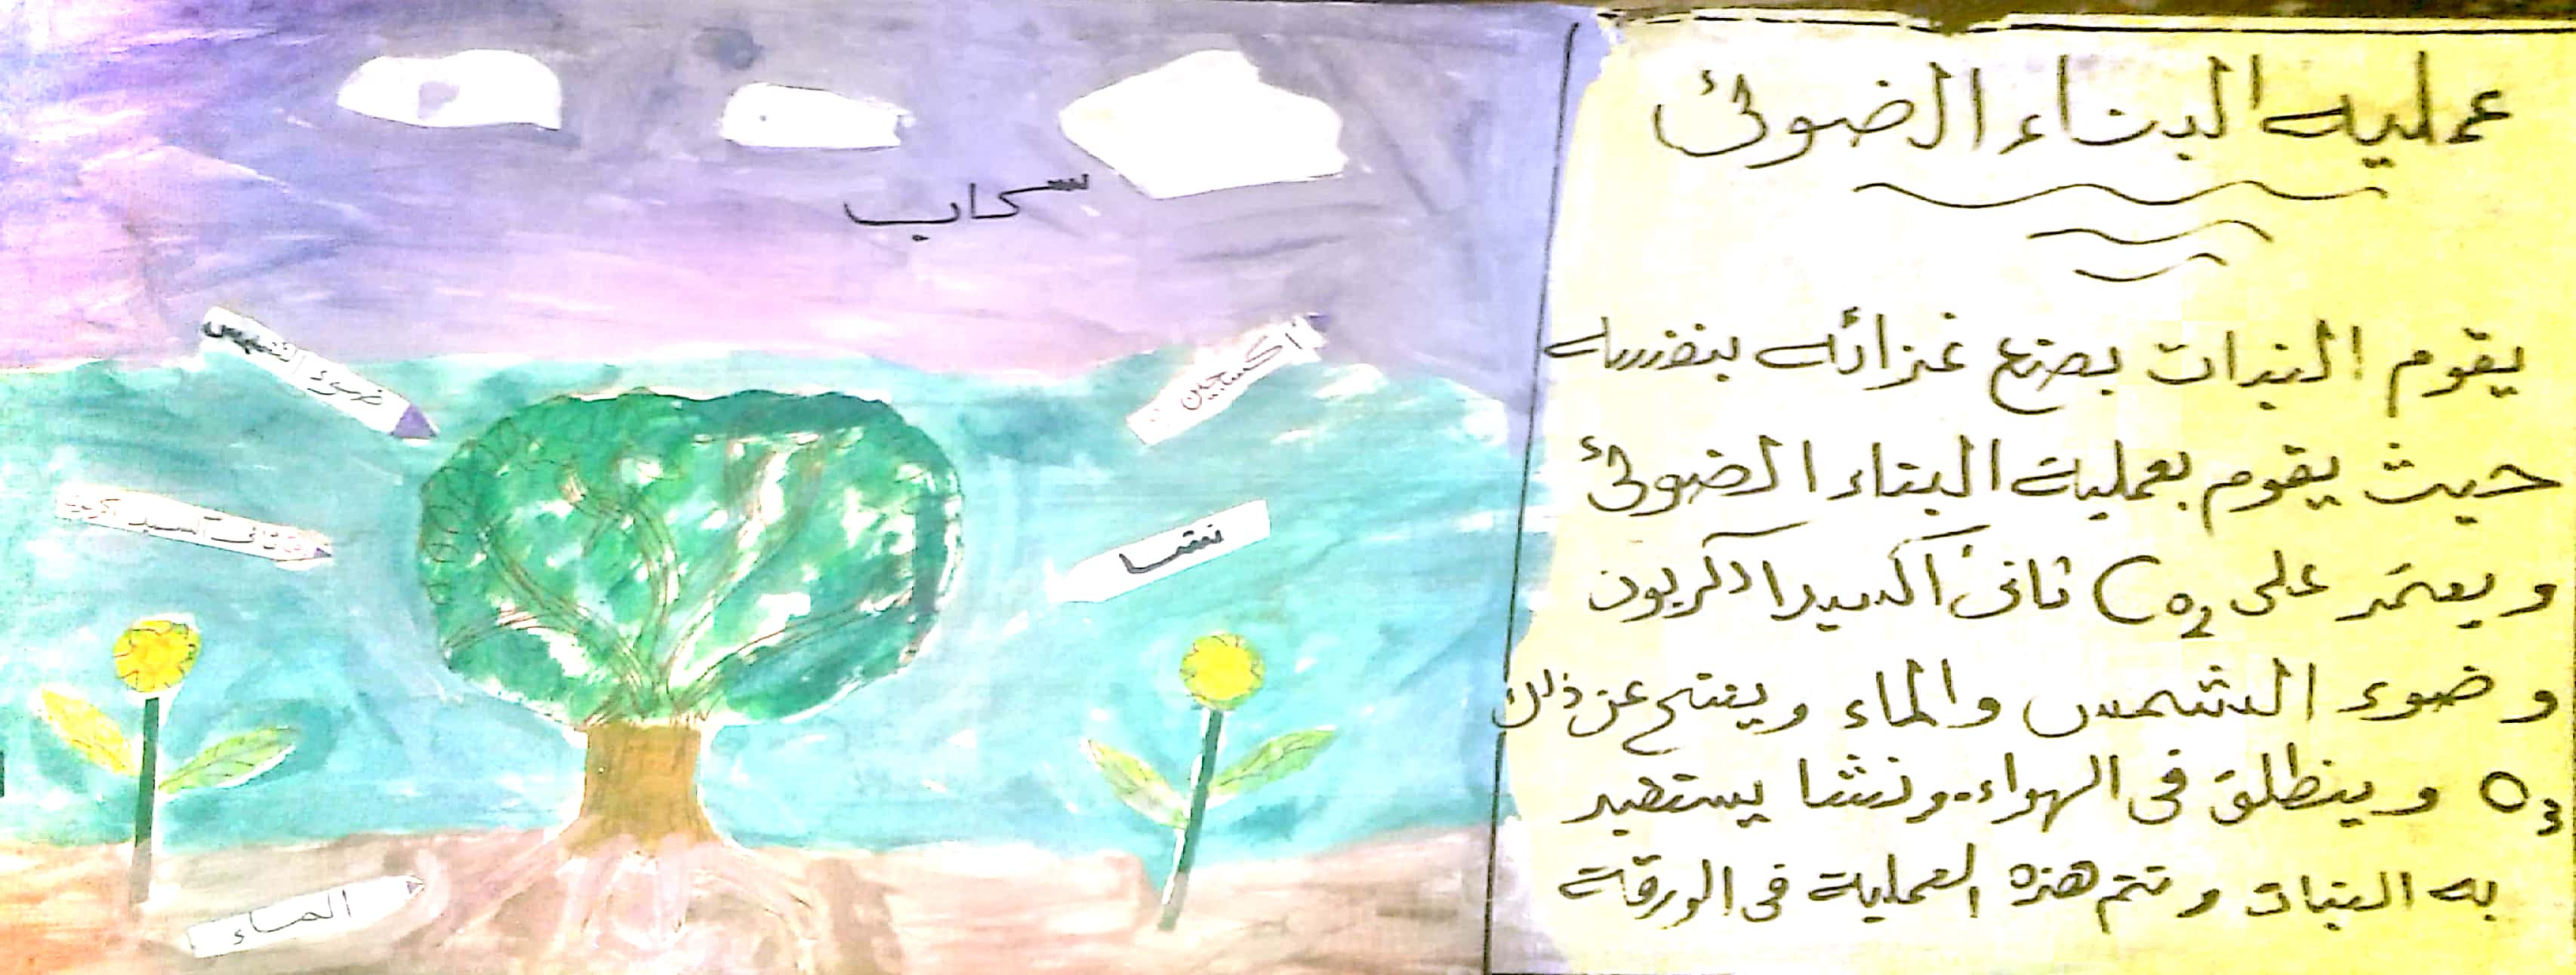 عمليه البناء الضوئ
يقوم النبات بصنع غذائه بنفسه
حيث يقوم بعملية البناء الضوئ
و يعتمد على CO2 ثانى اكسيد الكربون
و ضوء الشمس والماء وينتج عن ذلك
O3 وينطلق فى الهواء. ونشا يستفيد
به النبات و تتم هذه العملية فى الورقة
سحاب
ضوء الشمس
اكسجين
ثانى اكسيد الكربون
نشا
الماء